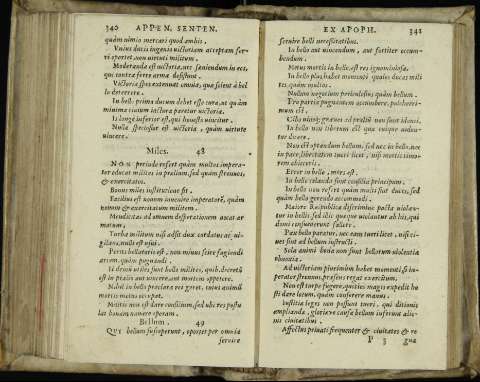 340 APPEN. SENTEN.
quàm nimio mercari quod ambis.
Vnius ducis ingenio uictoriam acceptam fer
ri oportet, non uirtuti militum.
Moderanda est uictoria, nec sæuiendum in eos,
qui contra ferre arma desistunt.
Victoria spes extenuat omnia, quæ solent à bel
lo deterrere.
In bello prima ducum debet esse cura, ut quàm
minima ciuium iactura pariatur uictoria.
Is longè inferior est, qui honestè uincitur.
Nulla speciosior est uictoria, quàm uirtute
uincere.
Miles. 48
NON perinde refert quàm multos impera-
tor educat milites in prælium, sed quàm strenuos,
& exercitatos.
Bonus miles institutione fit.
Facilius est bonum inuenire imperatorē, quàm
bonum & exercitatum militem.
Mendicitas ad amorem desertationem uocat ar
matum.
Turba militum nisi adsit dux cordatus ac ui-
gilans, nulli est usui.
Peritis bellatoris est, non minus scire fugiendi
artem, quàm pugnandi.
Ii demū utiles sunt bello milites, quib. decretū
est in prælio aut uincere, aut mortem oppetere.
Nihil in bello præclarè rei geret, cuius animū
mortis metus occupat.
Militis non est dare consilium, sed ubi res postu
lat bonam nauare operam.
Bellum. 49
QVI bellum susceperunt, oportet per omnia
seruire
EX APOPH. 341
seruire belli necessitatibus.
In bello aut uincendum, aut fortiter occum-
bendum.
Metus mortis in bello, est res ignominiosa.
In bello plus habet momenti quales ducas mili
tes, quàm multos.
Nullum negocium periculosius quàm bellum.
Pro patria pugnantem occumbere, pulcherri-
mum est.
Citò uiriq; gnauos ad præliū non sunt idonei.
In bello non liberum est quæ cuique uidean-
tur dicere.
Non est optandum bellum, sed nec in bello, nec
in pace, libertatem tueri licet, nisi mortis timo-
rem abieceris.
Error in bello, mors est.
In bello celanda sunt consilia principum.
In bello non refert quàm multi sint duces, sed
quàm bello gerendo accommodi.
Maiore Reipublicæ discrimine pacta uiolan-
tur in bellis, sed illic quoque uiolantur ab his, qui
domi consueuerunt fallere.
Pax bello paratur, nec eam tueri licet, nisi ci-
ues sint ad bellum instructi.
Sola animi bona non sunt bellorum uiolentiæ
obnoxia.
Ad uictoriam plurimùm habet momenti, si im-
perator strenuus, præsens regat exercitum.
Non est turpe fugere, quoties magis expedit ho
sti dare locum, quàm conserere manus.
Iustitiæ leges non possunt tueri, qui ditionis
ampliandæ, gloriæ ve causa bellum inferunt alie-
nis ciuitatibus.
Affectus priuati frequenter & ciuitates & re
P 3 gna